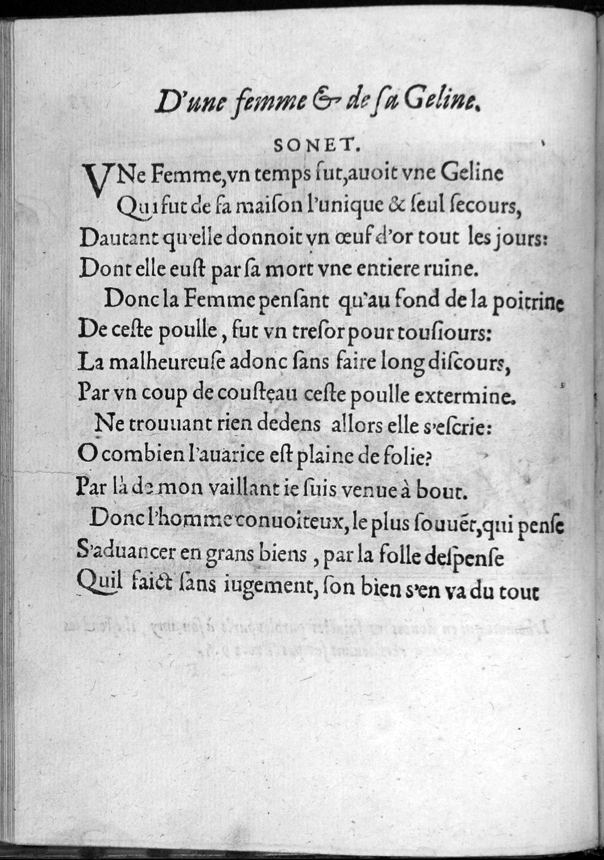 D'une femme & de sa Geline.
SONET.
VNe Femme, vn temps fut, auoit vne Geline
Qui fut de sa maison l'unique & seul secours,
Dautant qu'elle donnoit vn œuf d'or tout les jours:
Dont elle eust par sa mort vne entiere ruine.
Donc la Femme pensant qu'au fond de la poitrine
De ceste poulle, fut vn tresor pour tousiours:
La malheureuse adonc sans faire long discours,
Par vn coup de cousteau ceste poulle extermine.
Ne trouuant rien dedens allors elle s'escrie:
O combien l'auarice est plaine de folie?
Par là de mon vaillant ie suis venue à bout.
Donc l'homme conuoiteux, le plus souuēt, qui pense
S'aduancer en grans biens, par la folle despense
Quil faict sans iugement, son bien s'en va du tout